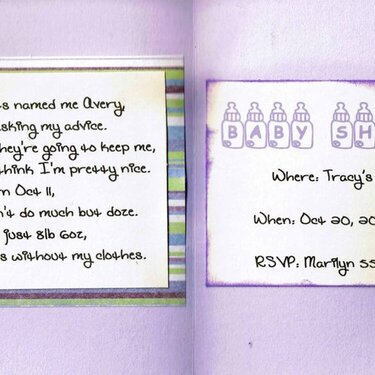 s named me Avery,
sking my advice.
hey're going to keep me,
think I'm pretty nice.
n Oct 11,
n't do much but doze.
just 8lb 6oz,
s without my clothes.
BABY SH
Where: Tracy's
When: Oct 20, 20
RSVP: Marilyn 55